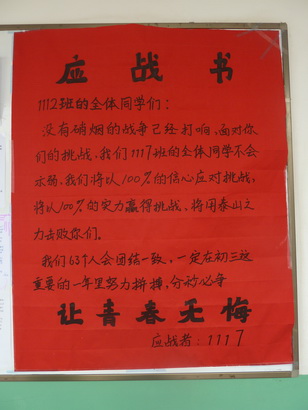 应战书
1112班的全体同学们：
没有硝烟的战争已经打响，面对你
们的挑战，我们1117班的全体同学不会
示弱，我们将以100%的信心应对挑战，
将以100%的实力赢得挑战，将用泰山之
力去败你们。
我们63个人会团结一致，一定在初三这
重要的一年里努力拼搏，分秒必争
让青春无悔
应战者：1117